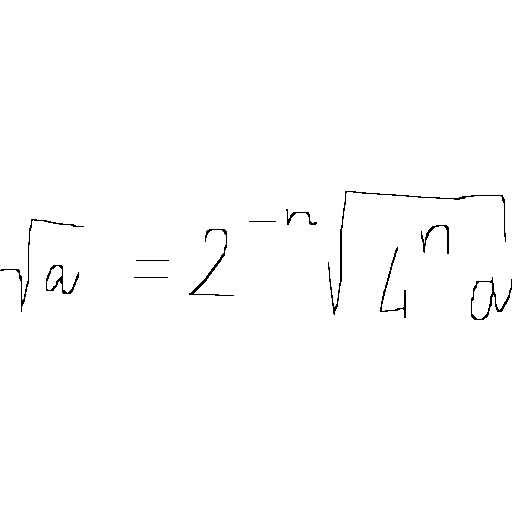 √a = 2^{-n} √(4^n a)